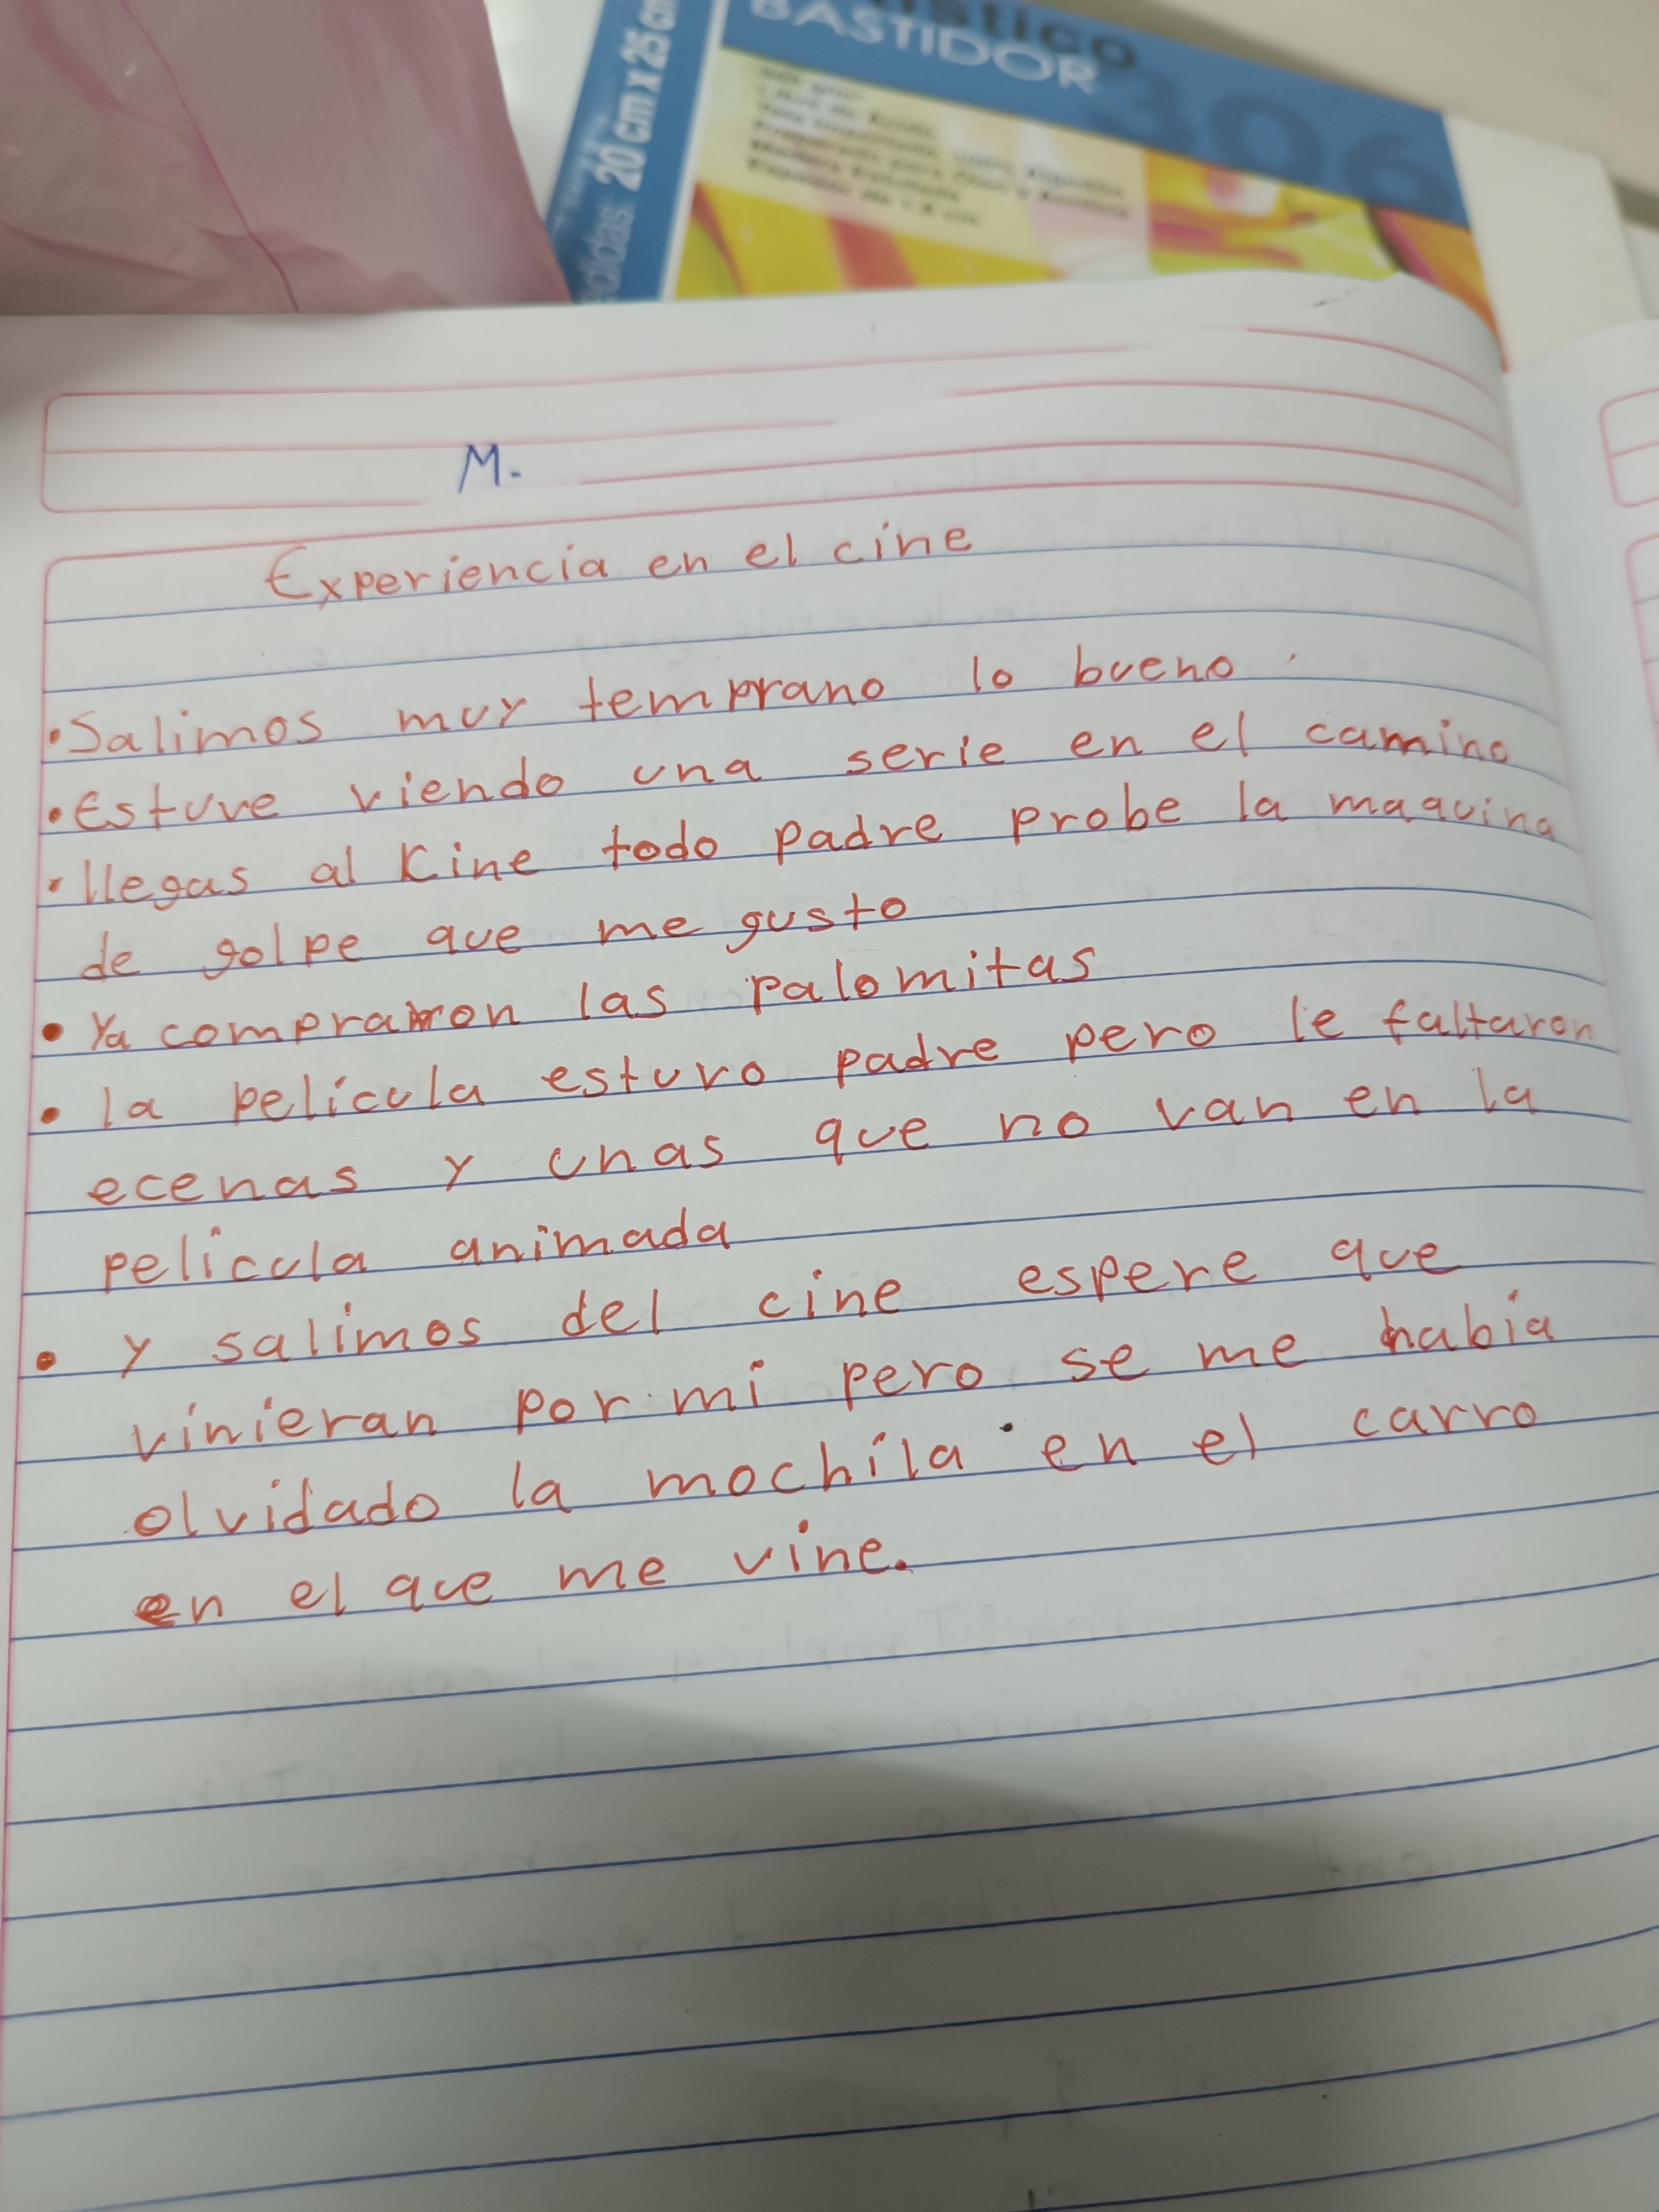 BASTIDOR
306
20 cm x 25 cm
M.
Experiencia en el cine
•Salimos muy temprano lo bueno.
•Estuve viendo una serie en el camino
•llegas al Kine todo padre probe la maquina
de golpe que me gusto
• Ya compraron las palomitas
• la película estuvo padre pero le faltaron
ecenas y unas que no van en la
película animada
• y salimos del cine espere que
vinieran por mi pero se me habia
olvidado la mochila en el carro
en el que me vine.